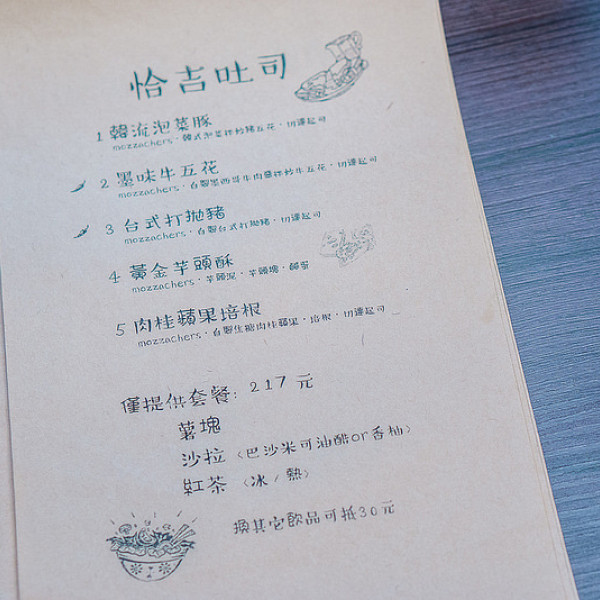 恰吉吐司
1 韓流泡菜豚
mozzachers · 韓式泡菜拌炒豬五花 · 切達起司
2 墨味牛五花
mozzachers · 自製墨西哥牛肉醬拌炒牛五花 · 切達起司
3 台式打拋豬
mozzachers · 自製台式打拋豬 · 切達起司
4 黃金芋頭酥
mozzachers · 芋頭泥 · 芋頭塊 · 鹹蛋
5 肉桂蘋果培根
mozzachers · 自製焦糖肉桂蘋果 · 培根 · 切達起司
僅提供套餐: 217 元
薯塊
沙拉 〈巴沙米可油醋or香柚〉
紅茶 〈冰 / 熱〉
換其它飲品可抵30元